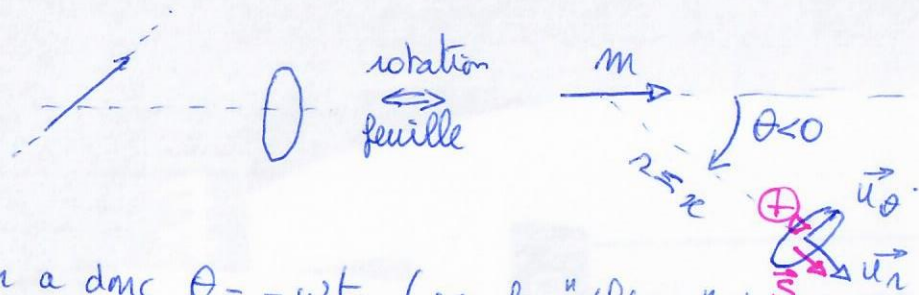 rotation
⇔
feuille
m
θ<0
r=x
+
u⃗_θ
u⃗_r
a donc θ = -ωt